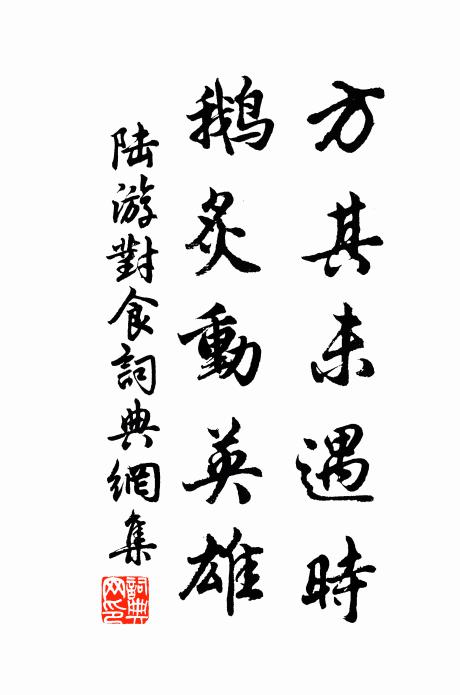 方其未遇時
鵝炙動英雄
陸游對食詞典網集
詞典網印